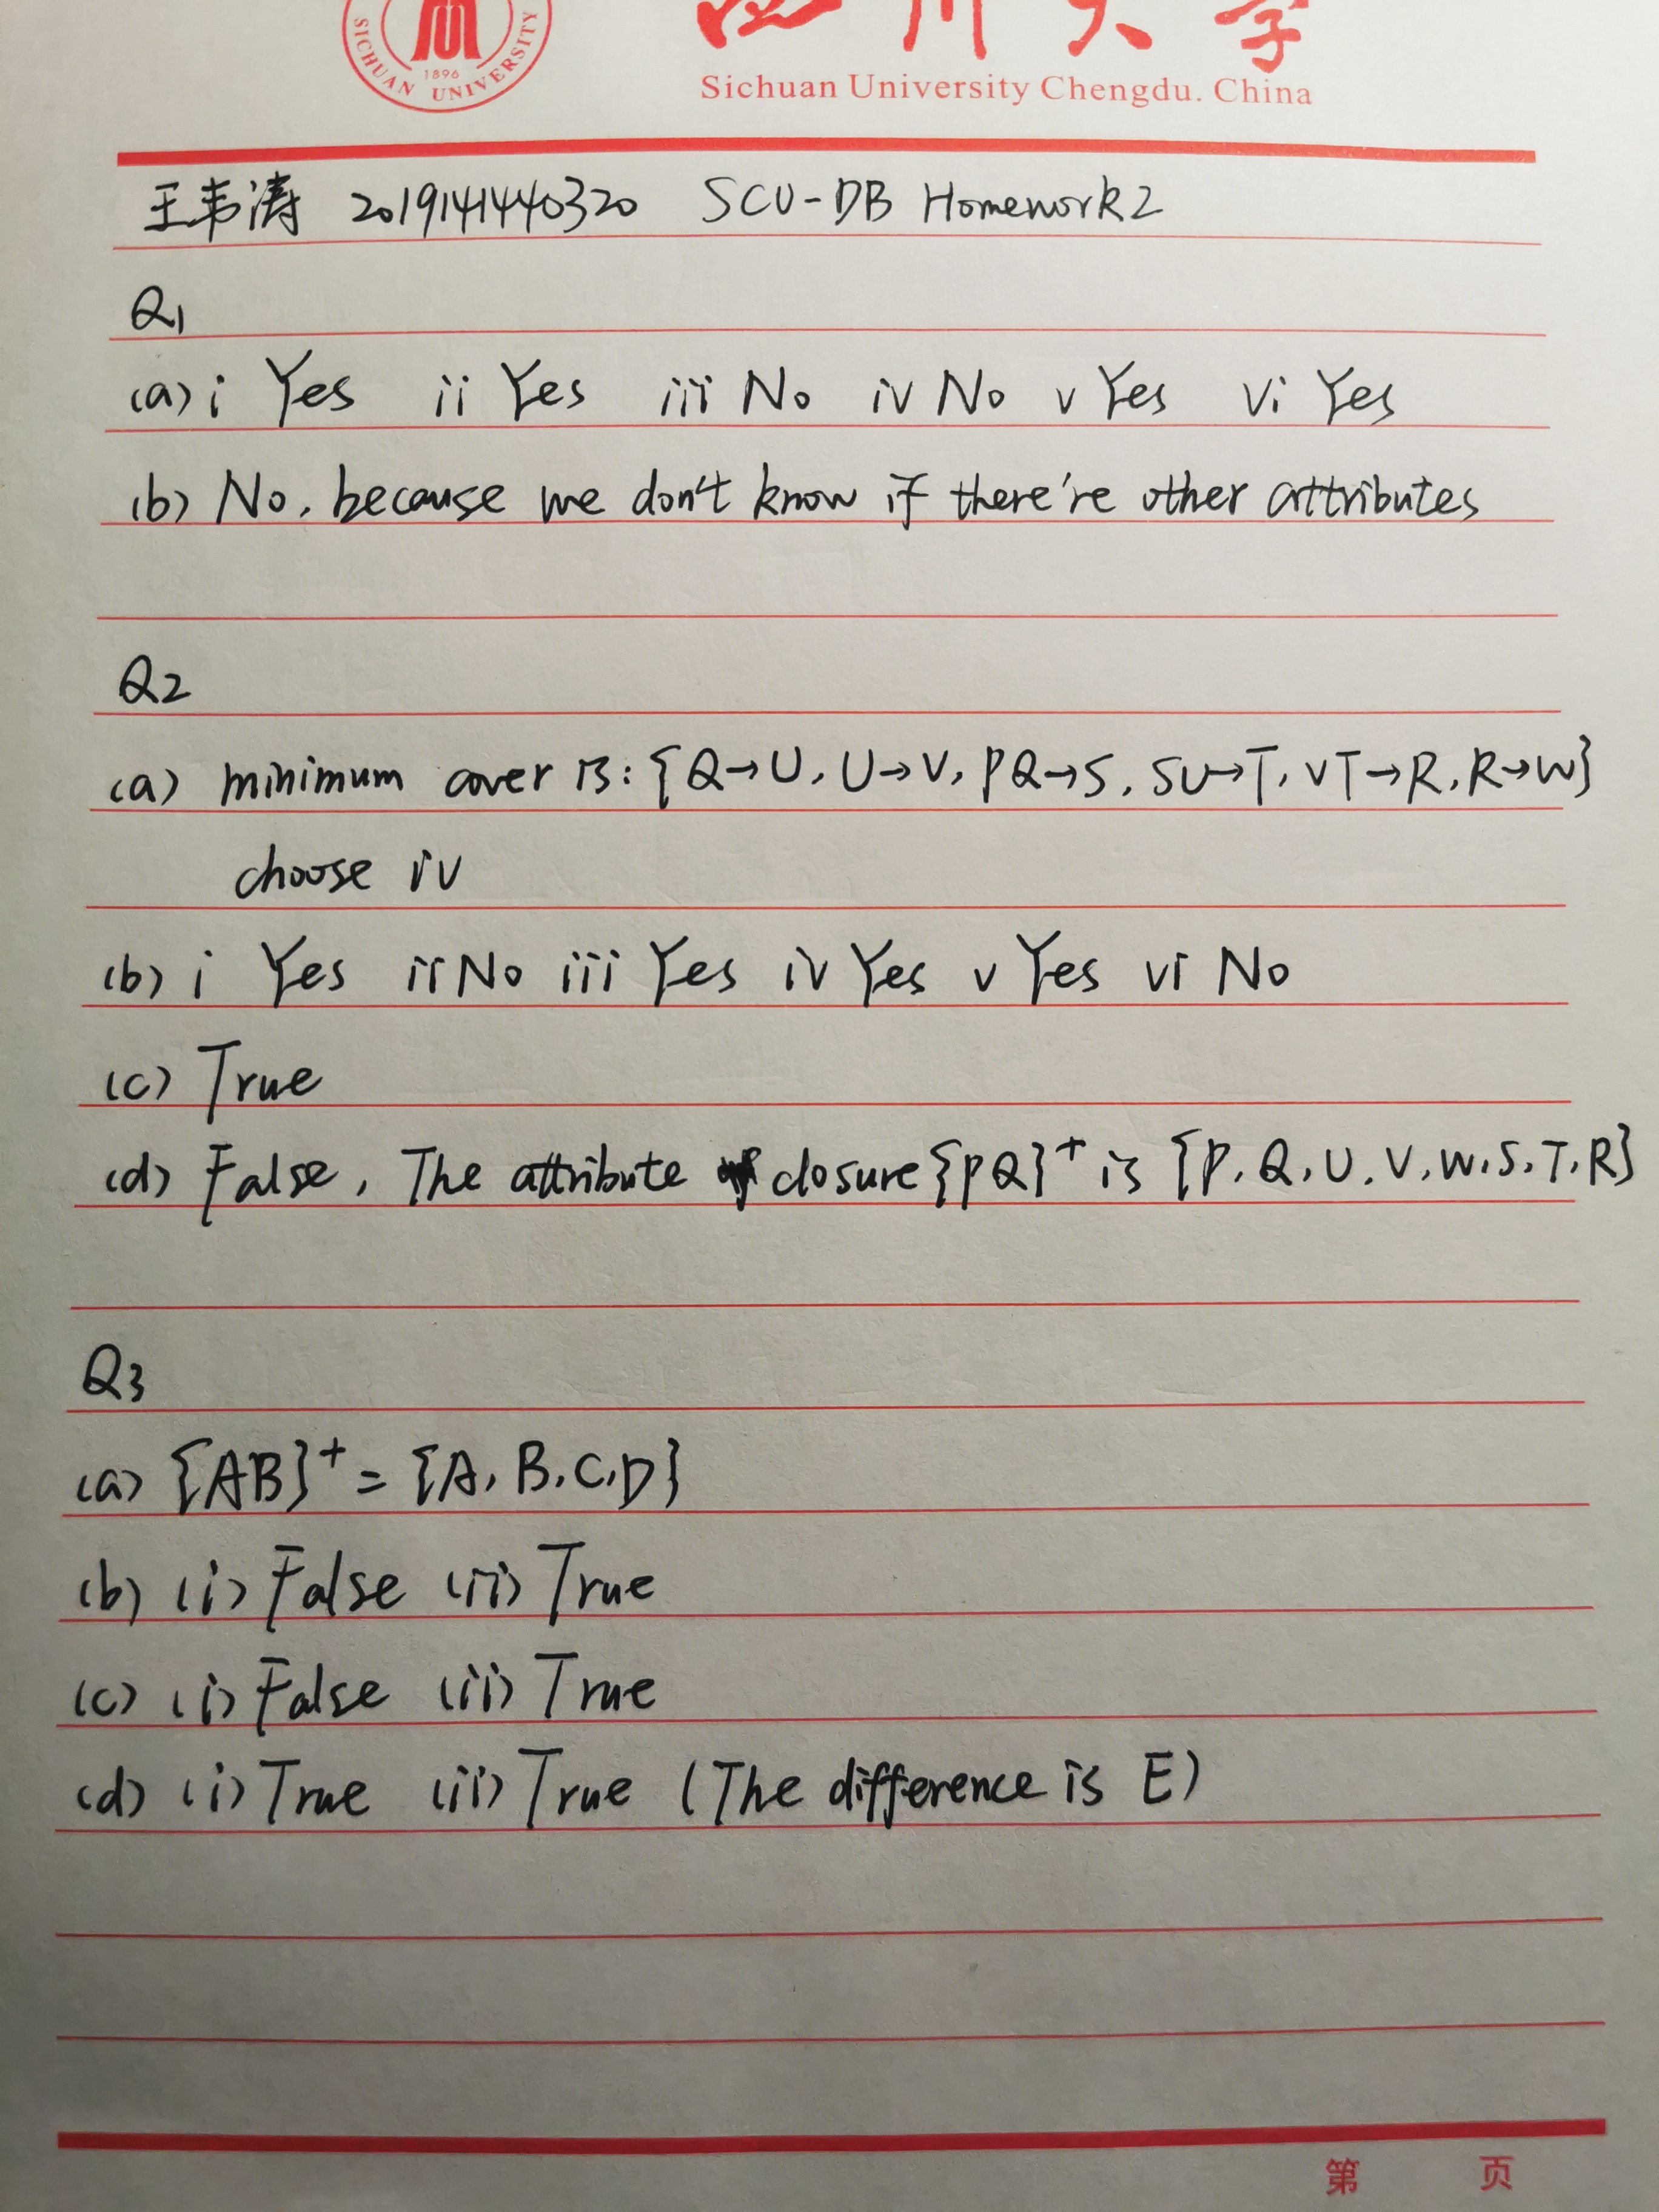 四川大学
SICHUAN UNIVERSITY
1896
Sichuan University Chengdu. China
王韦涛 2019141440320 SCU-DB Homework2
Q1
(a) i Yes ii Yes iii No iv No v Yes vi Yes
(b) No, because we don't know if there're other attributes
Q2
(a) minimum cover is: {Q→U, U→V, PQ→S, SU→T, VT→R, R→W}
choose iv
(b) i Yes ii No iii Yes iv Yes v Yes vi No
(c) True
(d) False, The attribute closure {PQ}⁺ is {P, Q, U, V, W, S, T, R}
Q3
(a) {AB}⁺ = {A, B, C, D}
(b) (i) False (ii) True
(c) (i) False (ii) True
(d) (i) True (ii) True (The difference is E)
第 页